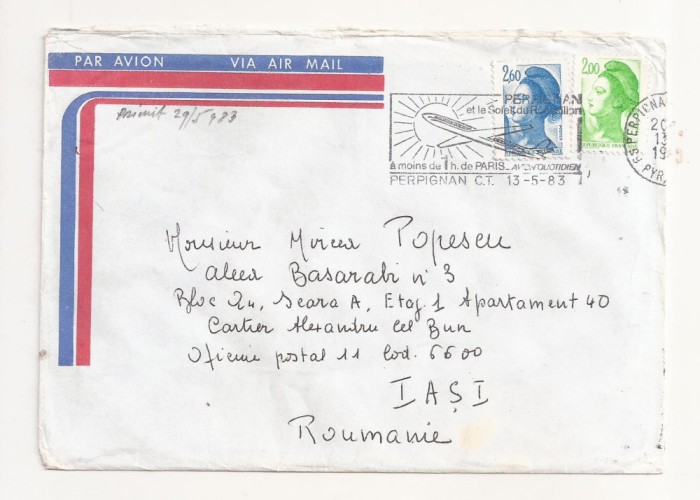 PAR AVION VIA AIR MAIL
Primit 29/5 983
2,60
2,00
PERPIGNAN
et le Soleil du Roussillon
à moins de 1 h. de PARIS_AVION QUOTIDIEN
PERPIGNAN C.T. 13-5-83
REPUBLIQUE FRANCAISE
PERPIGNA
20
13
19
PYR.
Monsieur Mircea Popescu
aleea Basarabi nº 3
Bloc 2u, Scara A, Etaj 1 Apartament 40
Cartier Alexandru cel Bun
Oficiu postal 11 Cod. 6600
IAȘI
Roumanie